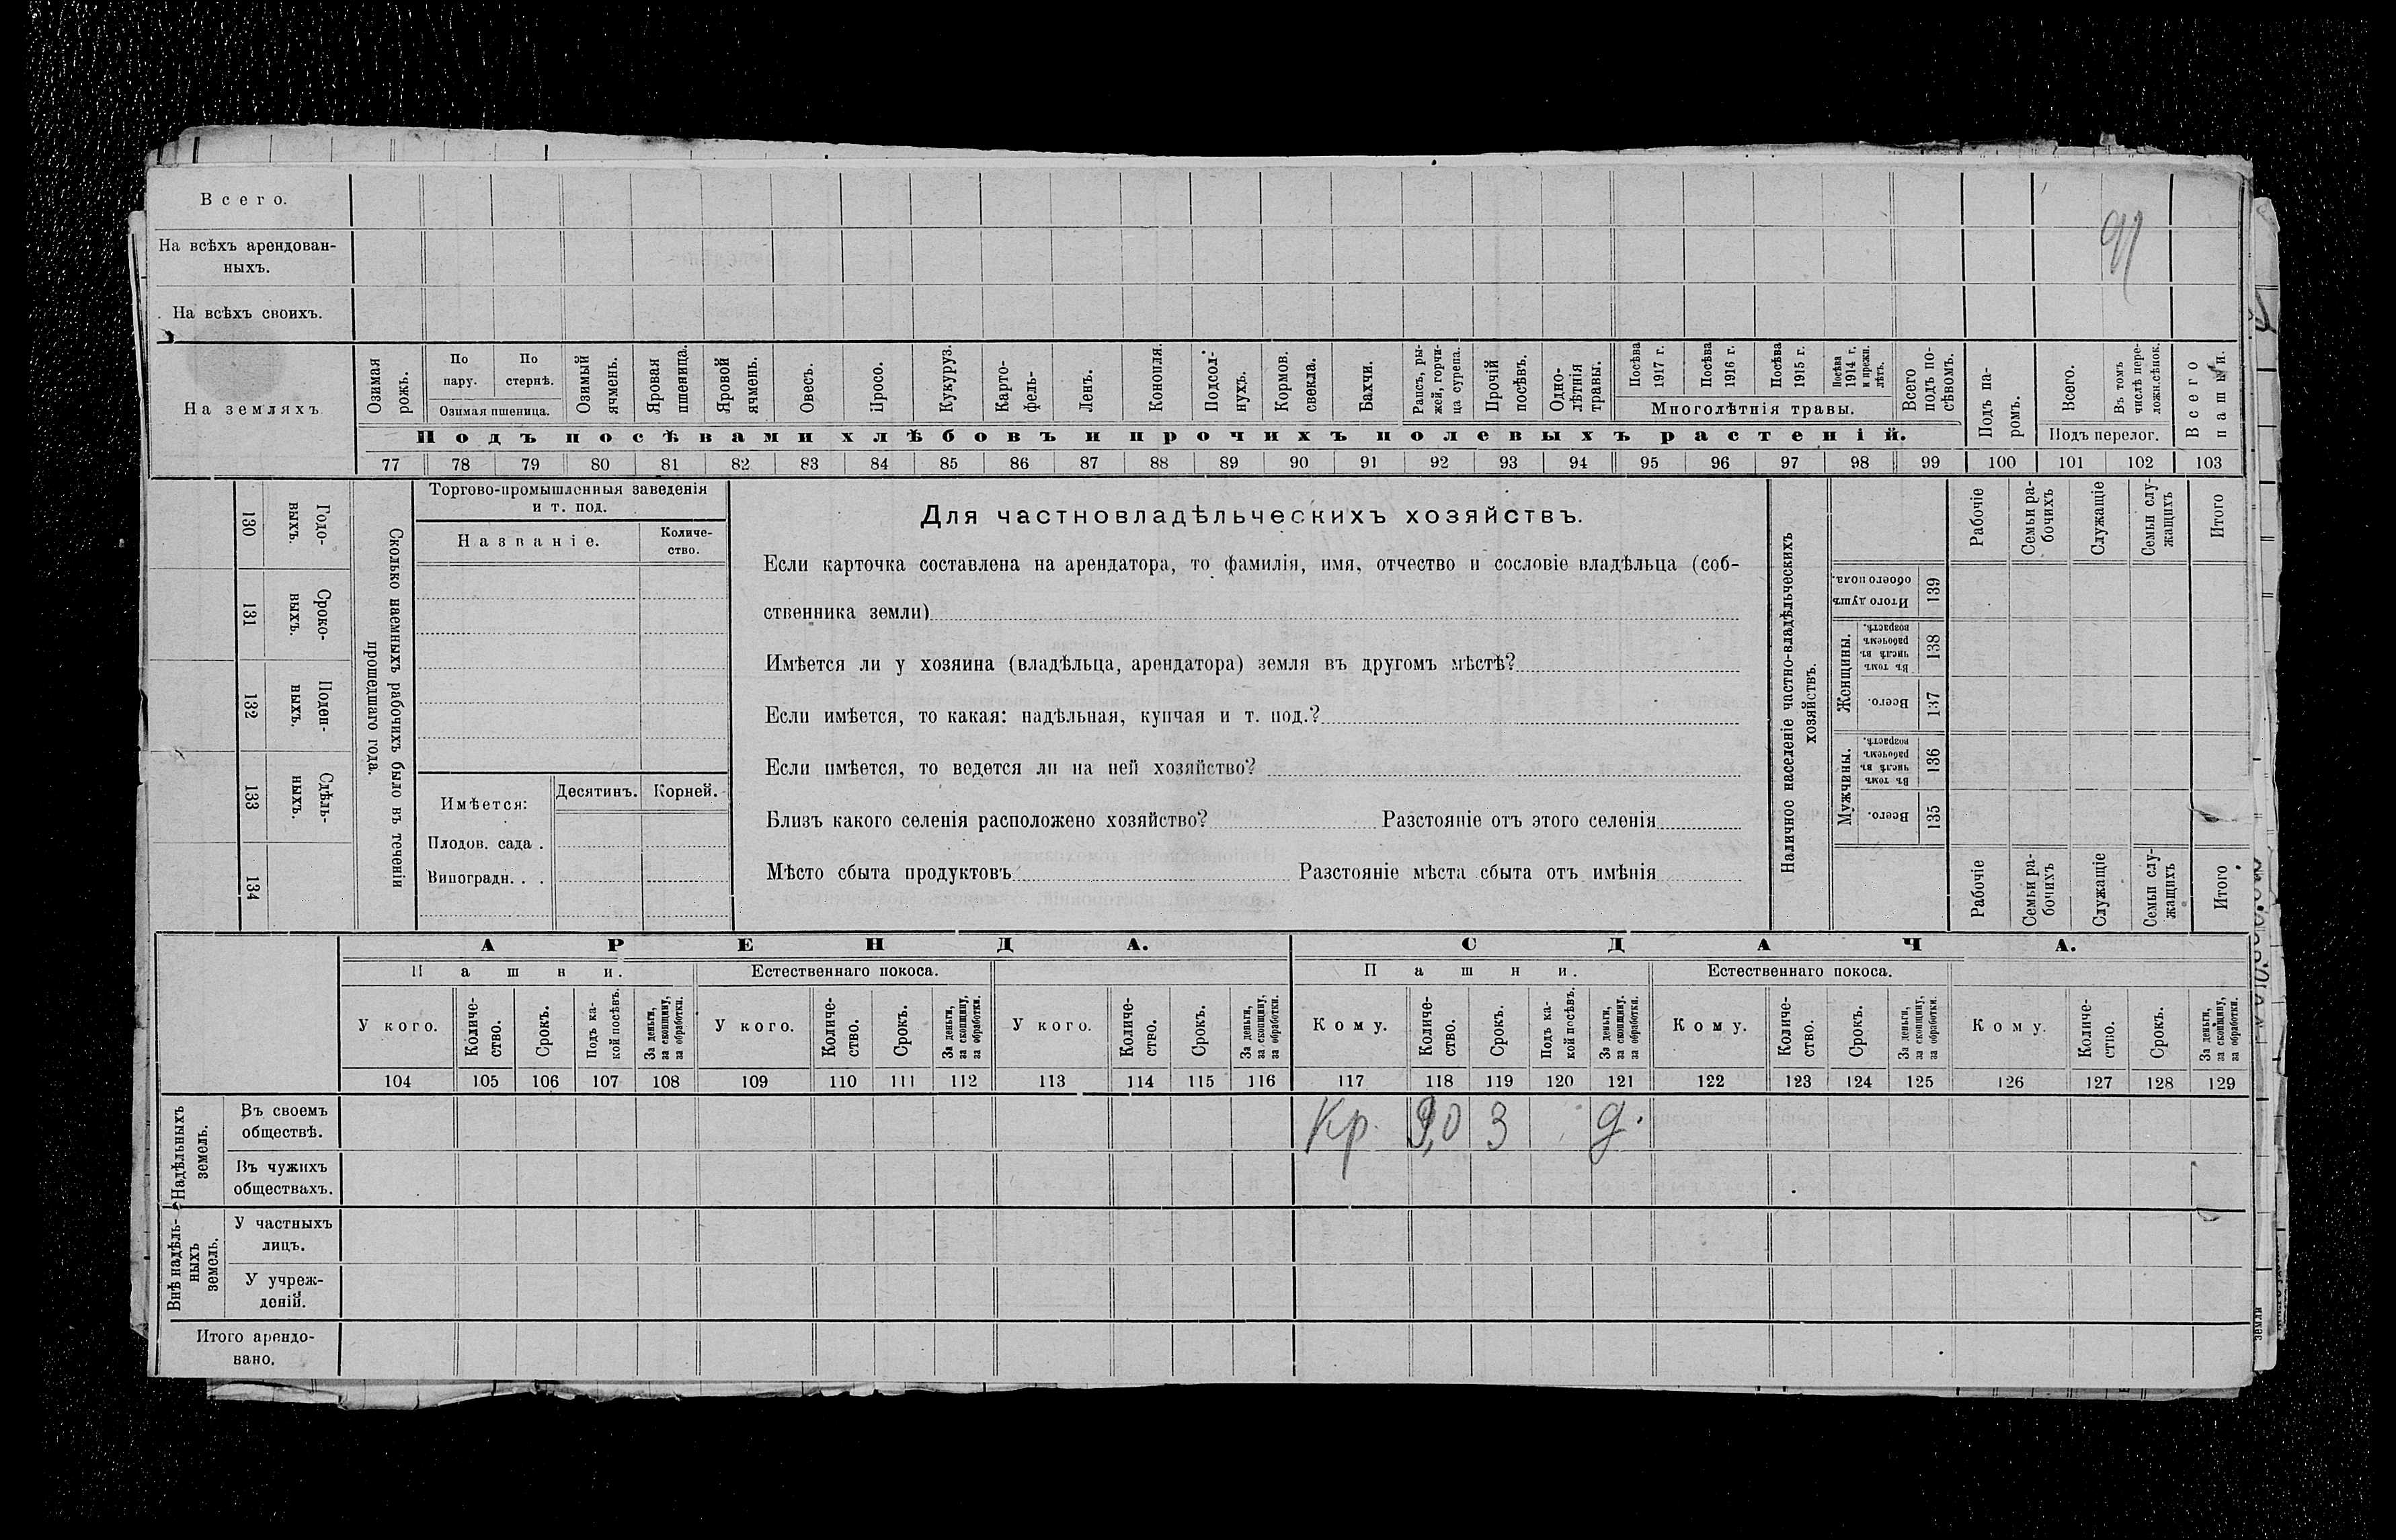 Всего.
На всѣхъ арендован-
ныхъ.
На всѣхъ своихъ.
На земляхъ
Озимая рожь.
По пару.
По стернѣ.
Озимая пшеница.
Озимый ячмень.
Яровая пшеница.
Яровой ячмень.
Овесъ.
Просо.
Кукуруз.
Карто-
фель-
Ленъ.
Конопля.
Подсол-
нухъ.
Кормов. свекла.
Бахчи.
Рапсъ, ры-
жей, горчи-
ца сурепа.
Прочій посѣвъ.
Одно-
лѣтнія травы.
Посѣва 1917 г.
Посѣва 1916 г.
Посѣва 1915 г.
Посѣва 1914 г. и прежн. лѣтъ.
Многолѣтнія травы.
Всего подъ по-
сѣвомъ.
Подъ па-
ромъ.
Всего.
Въ томъ числѣ пере-
ложн.сѣнок.
Подъ перелог.
Всего пашни.
Подъ посѣвами хлѣбовъ и прочихъ полевыхъ растеній.
77 78 79 80 81 82 83 84 85 86 87 88 89 90 91 92 93 94 95 96 97 98 99 100 101 102 103
130 Годо-
ныхъ.
131 Сроко-
выхъ.
132 Поден-
ныхъ.
133 Сдѣль-
ныхъ.
134
Сколько наемныхъ рабочихъ было въ теченіи
прошедшаго года.
Торгово-промышленныя заведенія
и т. под.
Названіе.
Количе-
ство.
Имѣется:
Десятинъ. Корней.
Плодов. сада .
Виноградн. . .
Для частновладѣльческихъ хозяйствъ.
Если карточка составлена на арендатора, то фамилія, имя, отчество и сословіе владѣльца (соб-
ственника земли)
Имѣется ли у хозяина (владѣльца, арендатора) земля въ другомъ мѣстѣ?
Если имѣется, то какая: надѣльная, купчая и т. под.?
Если имѣется, то ведется ли на ней хозяйство?
Близъ какого селенія расположено хозяйство? Разстояніе отъ этого селенія
Мѣсто сбыта продуктовъ Разстояніе мѣста сбыта отъ имѣнія
Наличное населеніе частно-владѣльческихъ
хозяйствъ.
Рабочіе
Семьи ра-
бочихъ
Служащіе
Семьи слу-
жащихъ
Итого
Итого душъ обоего пола. 139
Женщины.
Въ томъ числѣ въ рабочемъ возрастѣ. 138
Всего. 137
Мужчины.
Въ томъ числѣ въ рабочемъ возрастѣ. 136
Всего. 135
Рабочіе
Семьи ра-
бочихъ
Служащіе
Семьи слу-
жащихъ
Итого
АРЕНДА. СДАЧА.
Пашни. Естественнаго покоса. Пашни. Естественнаго покоса.
У кого.
Количе-
ство.
Срокъ.
Подъ ка-
кой посѣвъ.
За деньги, за скопщину, за обработки.
У кого.
Количе-
ство.
Срокъ.
За деньги, за скопщину, за обработки.
У кого.
Количе-
ство.
Срокъ.
За деньги, за скопщину, за обработки.
Кому.
Количе-
ство.
Срокъ.
Подъ ка-
кой посѣвъ.
За деньги, за скопщину, за обработки.
Кому.
Количе-
ство.
Срокъ.
За деньги, за скопщину, за обработки.
Кому.
Количе-
ство.
Срокъ.
За деньги, за скопщину, за обработки.
104 105 106 107 108 109 110 111 112 113 114 115 116 117 118 119 120 121 122 123 124 125 126 127 128 129
Надѣльныхъ земель.
Въ своемъ
обществѣ.
Кр. 3 д.
Въ чужихъ
обществахъ.
Внѣ надѣль-
ныхъ земель.
У частныхъ
лицъ.
У учреж-
деній.
Итого арендо-
вано.
земли